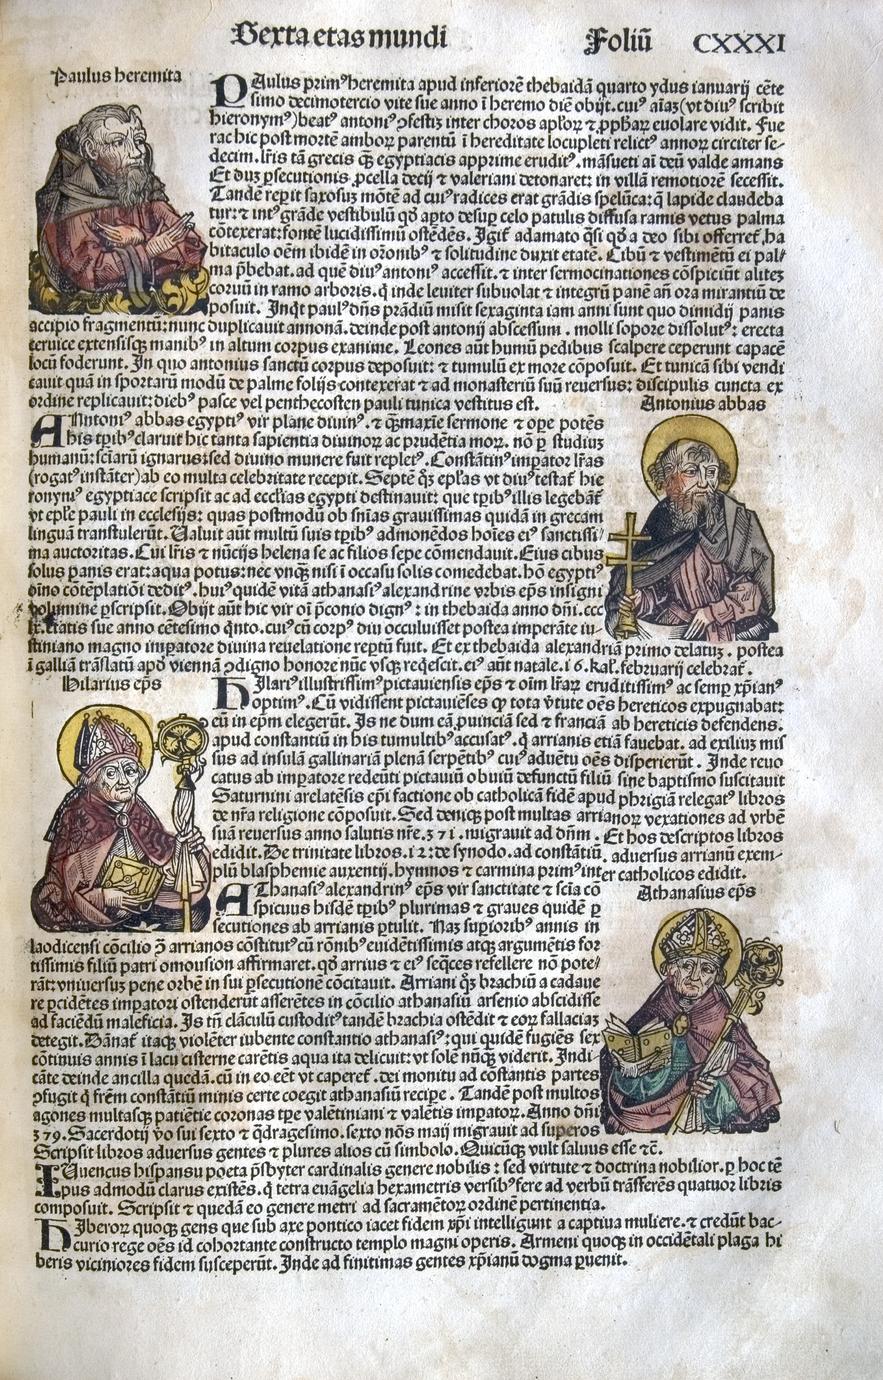 Sexta etas mundi Foliū CXXXI
Paulus heremita
PAulus primꝰ heremita apud inferiorē thebaidā quarto ydus ianuarij cēte
simo decimotercio vite sue anno ī heremo diē obijt. cuiꝰ aīaꝫ (vt diuꝰ scribit
hieronymꝰ) beatꝰ antoniꝰ ꝯfestiꝫ inter choros apl'oꝝ ⁊ ꝓphaꝝ euolare vidit. Fue
rac hic post mortē amboꝝ parentū ī hereditate locupleti relictꝰ annoꝝ circiter se-
decim. lr̄is tā grecis qꝫ egyptiacis apprime eruditꝰ. māsueti aī deū valde amans
Et duꝫ ꝑsecutionis ꝓcella decij ⁊ valeriani detonaret: in villā remotiorē secessit.
Tandē reꝑit saxosuꝫ mōtē ad cuiꝰ radices erat grādis spelūca: q̄ lapide claudeba
tur: ⁊ intꝰ grāde vestibulū qd̄ aꝑto desuꝑ celo patulis diffusa ramis vetus palma
cōtexerat: fontē lucidissimū ostēdēs. Igit̄ adamato q̄si qd̄ a deo sibi offerret̄, ha
bitaculo oēm ibidē in or̄onibꝰ ⁊ solitudine duxit etatē. Cibū ⁊ vestimētū ei pal-
ma p̄bebat. ad quē diuꝰ antoniꝰ accessit. ⁊ inter sermocinationes cōspiciūt aliteꝫ
coruū in ramo arboris. q̄ inde leuiter subuolat ⁊ integrū panē añ ora mirantiū de
posuit. Inq̄t paulꝰ dn̄s prādiū misit sexaginta iam anni sunt quo dimidij panis
accipio fragmentū: nunc duplicauit annonā. deinde post antonij abscessum. molli sopore dissolutꝰ: erecta
ceruice extensisqꝫ manibꝰ in altum corpus exanime. Leones aūt humū pedibus scalpere ceperunt capacē
locū foderunt. In quo antonius sanctū corpus deposuit: ⁊ tumulū ex more cōposuit. Et tunicā sibi vendi
cauit quā in sportarū modū de palme folijs contexerat ⁊ ad monasteriū suū reuersus: discipulis cuncta ex
ordine replicauit: diebꝰ pasce vel penthecosten pauli tunica vestitus est.
Antonius abbas
ANtoniꝰ abbas egyptiꝰ vir plane diuinꝰ. ⁊ qꝫmaxīe sermone ⁊ oꝑe potēs
his tꝑibꝰ claruit hic tanta sapientia diuinoꝝ ac prudētia moꝝ. nō ꝑ studiuꝫ
humanū: sciarū ignarus: sed diuino munere fuit repletꝰ. Constātinꝰ imꝑator lr̄as
(rogatꝰ instāter) ab eo multa celebritate recepit. Septē qꝫ epl'as vt diuꝰ testat̄ hie
ronymꝰ egyptiace scripsit ac ad eccl'ias egypti destinauit: que tꝑibꝰ illis legebāt̄
vt epl'e pauli in ecclesijs: quas postmodū ob sn̄ias grauissimas quidā in grecam
linguā transtulerūt. Ualuit aūt multū suis tꝑibꝰ admonēdos hoīes eiꝰ sanctissi-
ma auctoritas. Cui lr̄is ⁊ nūcijs helena se ac filios sepe cōmendauit. Eius cibus
solus panis erat: aqua potus: nec vnqꝫ nisi ī occasu solis comedebat. hō egyptiꝰ
oīno cōtēplatiōi deditꝰ. huiꝰ quidē vitā athanasiꝰ alexandrine vrbis ep̄s insigni
volumine ꝑscripsit. Obijt aūt hic vir oī p̄conio dignꝰ: in thebaida anno dn̄i. ccc
lx. etatis sue anno cētesimo q̄nto. cuiꝰ cū corpꝰ diu occuluisset postea imperāte iu-
stiniano magno imꝑatore diuina reuelatione reꝑtū fuit. Et ex thebaida alexandriā primo delatuꝫ. postea
ī galliam trāslatū apd̄ viennā ꝯdigno honore nūc vsqꝫ req̄escit. eiꝰ aūt natale. 16. kal'. februarij celebrat̄.
Hilarius ep̄s
HIlariꝰ illustrissimꝰ pictauiensis ep̄s ⁊ oīm lr̄aꝝ eruditissimꝰ ac semꝑ xp̄ianꝰ
optimꝰ. Cū vidissent pictauiēses ꝙ tota v̄tute oēs hereticos expugnabat:
cū in ep̄m elegerūt. Is ne dum eā ꝓuinciā sed ⁊ franciā ab hereticis defendens.
apud constantiū in his tumultibꝰ accusatꝰ. q̄ arrianis etiā fauebat. ad exiliuꝫ mis
sus ad insulā gallinariā plenā serpētibꝰ cuiꝰ aduētu oēs disperierūt. Inde reuo
catus ab imꝑatore redeūti pictauiū obuiū defunctū filiū sine baptismo suscitauit
Saturnini arelatēsis ep̄i factione ob catholicā fidē apud phrigiā relegatꝰ libros
de nr̄a religione cōposuit. Sed deniqꝫ post multas arrianoꝝ vexationes ad vrbē
suā reuersus anno salutis nr̄e. 371. migrauit ad dn̄m. Et hos descriptos libros
edidit. De trinitate libros. 12: de synodo. ad constātiū. aduersus arrianū exem-
plū blasphemie auxentij. hymnos ⁊ carmina primꝰ inter catholicos edidit.
Athanasius ep̄s
AThanasiꝰ alexandrinꝰ ep̄s vir sanctitate ⁊ scīa cō
spicuus hisdē tꝑibꝰ plurimas ⁊ graues quidē ꝑ
secutiones ab arrianis ꝑtulit. Naꝫ suꝑioribꝰ annis in
laodicensi cōcilio ꝯ̄ arrianos cōstitutꝰ cū rōnibꝰ euidētissimis atqꝫ argumētis for
tissimis filiū patri omousion affirmaret. qd̄ arrius ⁊ eiꝰ seq̄ces refellere nō pote-
rāt: vniuersuꝫ pene orbē in sui ꝑsecutionē cōcitauit. Arriani q̄ꝫ brachiū a cadaue
re ꝑcidētes imꝑatori ostenderūt asserētes in cōcilio athanasiū arsenio abscidisse
ad faciēdū maleficia. Is tn̄ clāculū custoditꝰ tandē brachia ostēdit ⁊ eoꝝ fallaciaꝫ
detegit. Dānat̄ itaqꝫ violēter iubente constantio athanasiꝰ: qui quidē fugiēs sex
cōtinuis annis ī lacu cisterne carētis aqua ita delicuit: vt solē nūqꝫ viderit. Indi-
cāte deinde ancilla quedā. cū in eo eēt vt caperet̄. dei monitu ad cōstantis partes
ꝯfugit q̄ fr̄em constātiū minis certe coegit athanasiū reciꝑe. Tandē post multos
agones multasqꝫ patiētie coronas tꝑe valētiniani ⁊ valētis imꝑatoꝝ. Anno dn̄i
379. Sacerdotij v̄o sui sexto ⁊ q̄dragesimo. sexto nōs maij migrauit ad superos
Scripsit libros aduersus gentes ⁊ plures alios cū simbolo. Quicūqꝫ vult saluus esse ⁊c̄.
IUuencus hispansu poeta p̄sbyter cardinalis genere nobilis: sed virtute ⁊ doctrina nobilior. ꝑ hoc tē
pus admodū clarus existēs. q̄ tetra euāgelia hexametris versibꝰ fere ad verbū trāsferēs quatuor libris
composuit. Scripsit ⁊ quedā eo genere metri ad sacramētoꝝ ordinē pertinentia.
HIberoꝝ quoqꝫ gens que sub axe pontico iacet fidem xp̄i intelligunt a captiua muliere. ⁊ credūt bac-
curio rege oēs id cohortante constructo templo magni operis. Armeni quoqꝫ in occidētali plaga hi
beris viciniores fidem susceperūt. Inde ad finitimas gentes xp̄ianū dogma ꝑuenit.